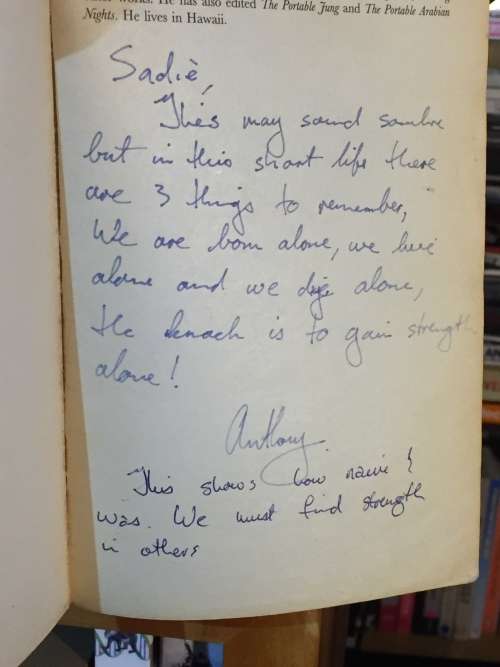 other works. He has also edited The Portable Jung and The Portable Arabian
Nights. He lives in Hawaii.
Sadie,
This may sound sombre
but in this short life there
are 3 things to remember,
We are born alone, we live
alone and we die alone,
the knack is to gain strength
alone!
Anthony.
This shows how naive I
was. We must find strength
in others